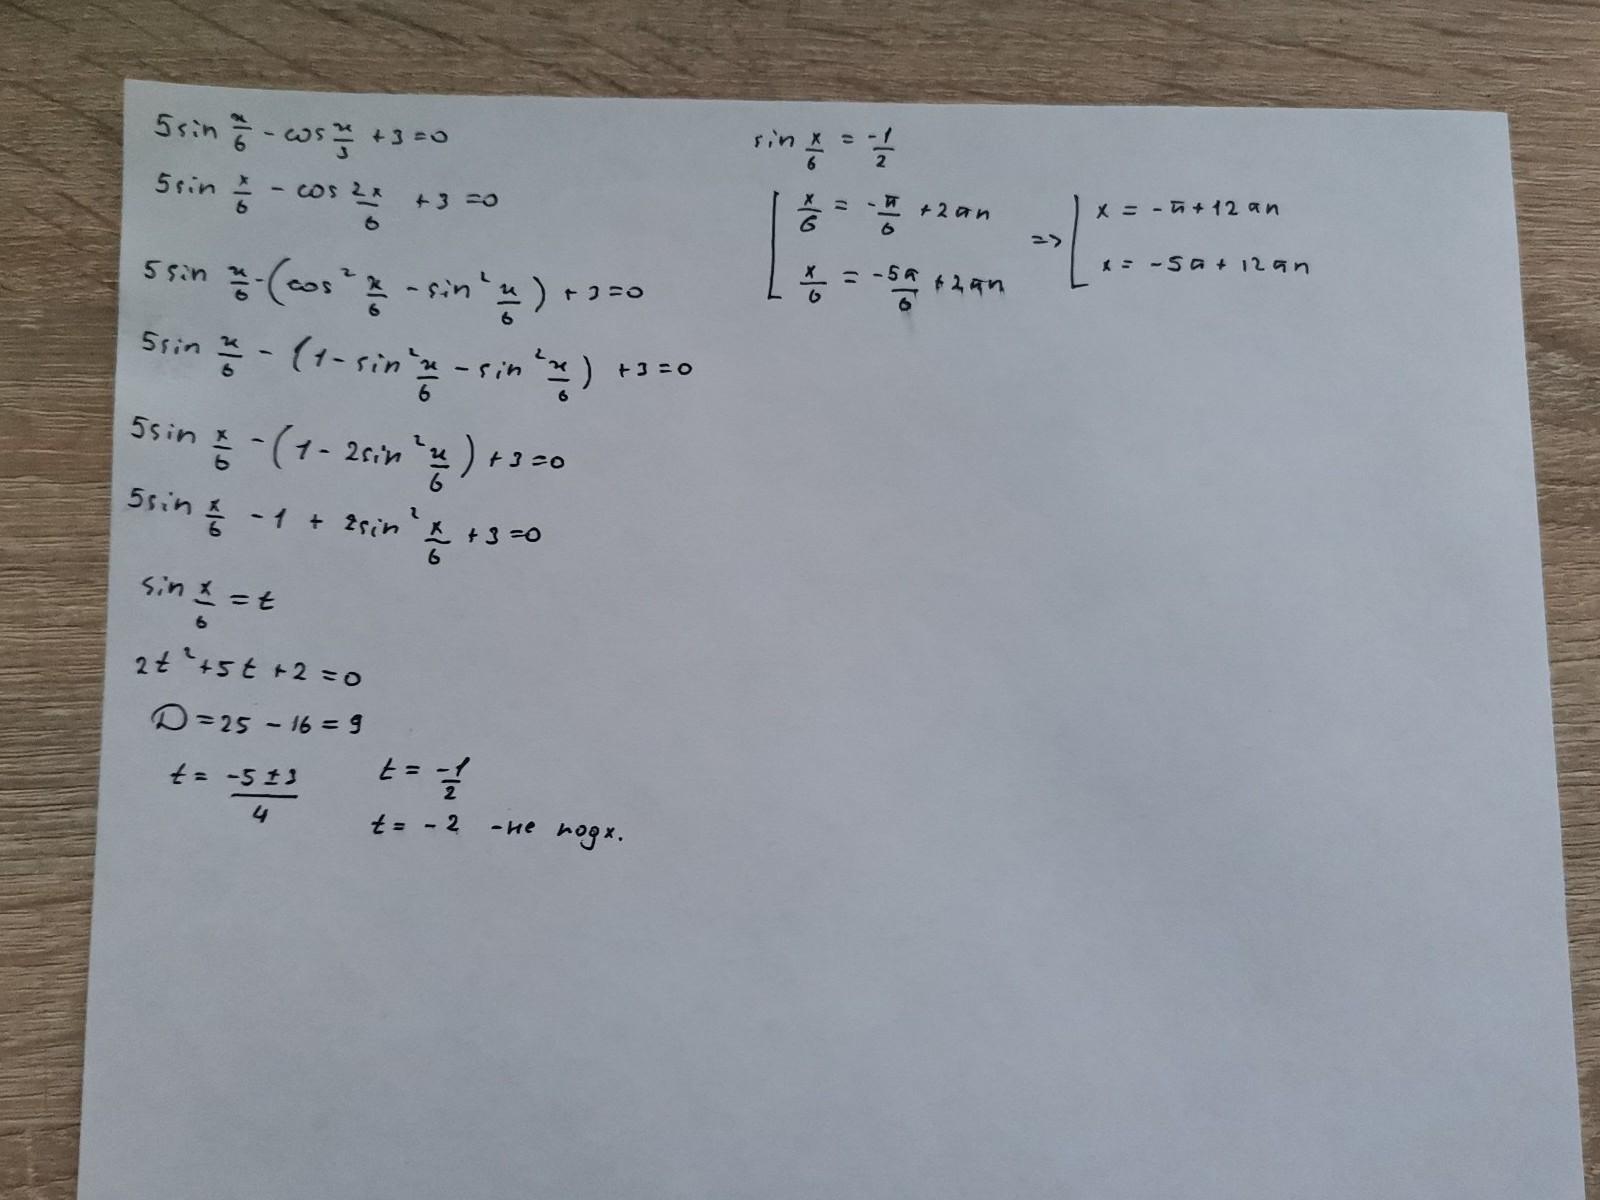 5sin x/6 - cos x/3 + 3 = 0
5sin x/6 - cos 2x/6 + 3 = 0
5sin x/6 - (cos² x/6 - sin² x/6) + 3 = 0
5sin x/6 - (1 - sin² x/6 - sin² x/6) + 3 = 0
5sin x/6 - (1 - 2sin² x/6) + 3 = 0
5sin x/6 - 1 + 2sin² x/6 + 3 = 0
sin x/6 = t
2t² + 5t + 2 = 0
D = 25 - 16 = 9
t = (-5 ± 3)/4   t = -1/2
t = -2 - не подх.
sin x/6 = -1/2
[ x/6 = -π/6 + 2πn   => [ x = -π + 12πn
x/6 = -5π/6 + 2πn   x = -5π + 12πn